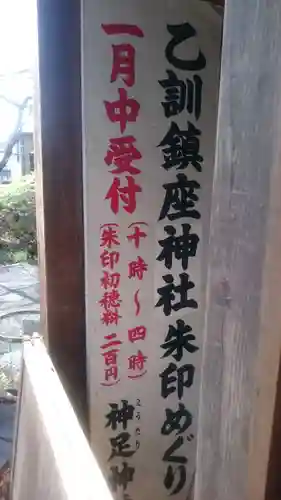 乙訓鎮座神社朱印めぐり
一月中受付
(十時〜四時)
(朱印初穂料 二百円)
神足神
こうたり